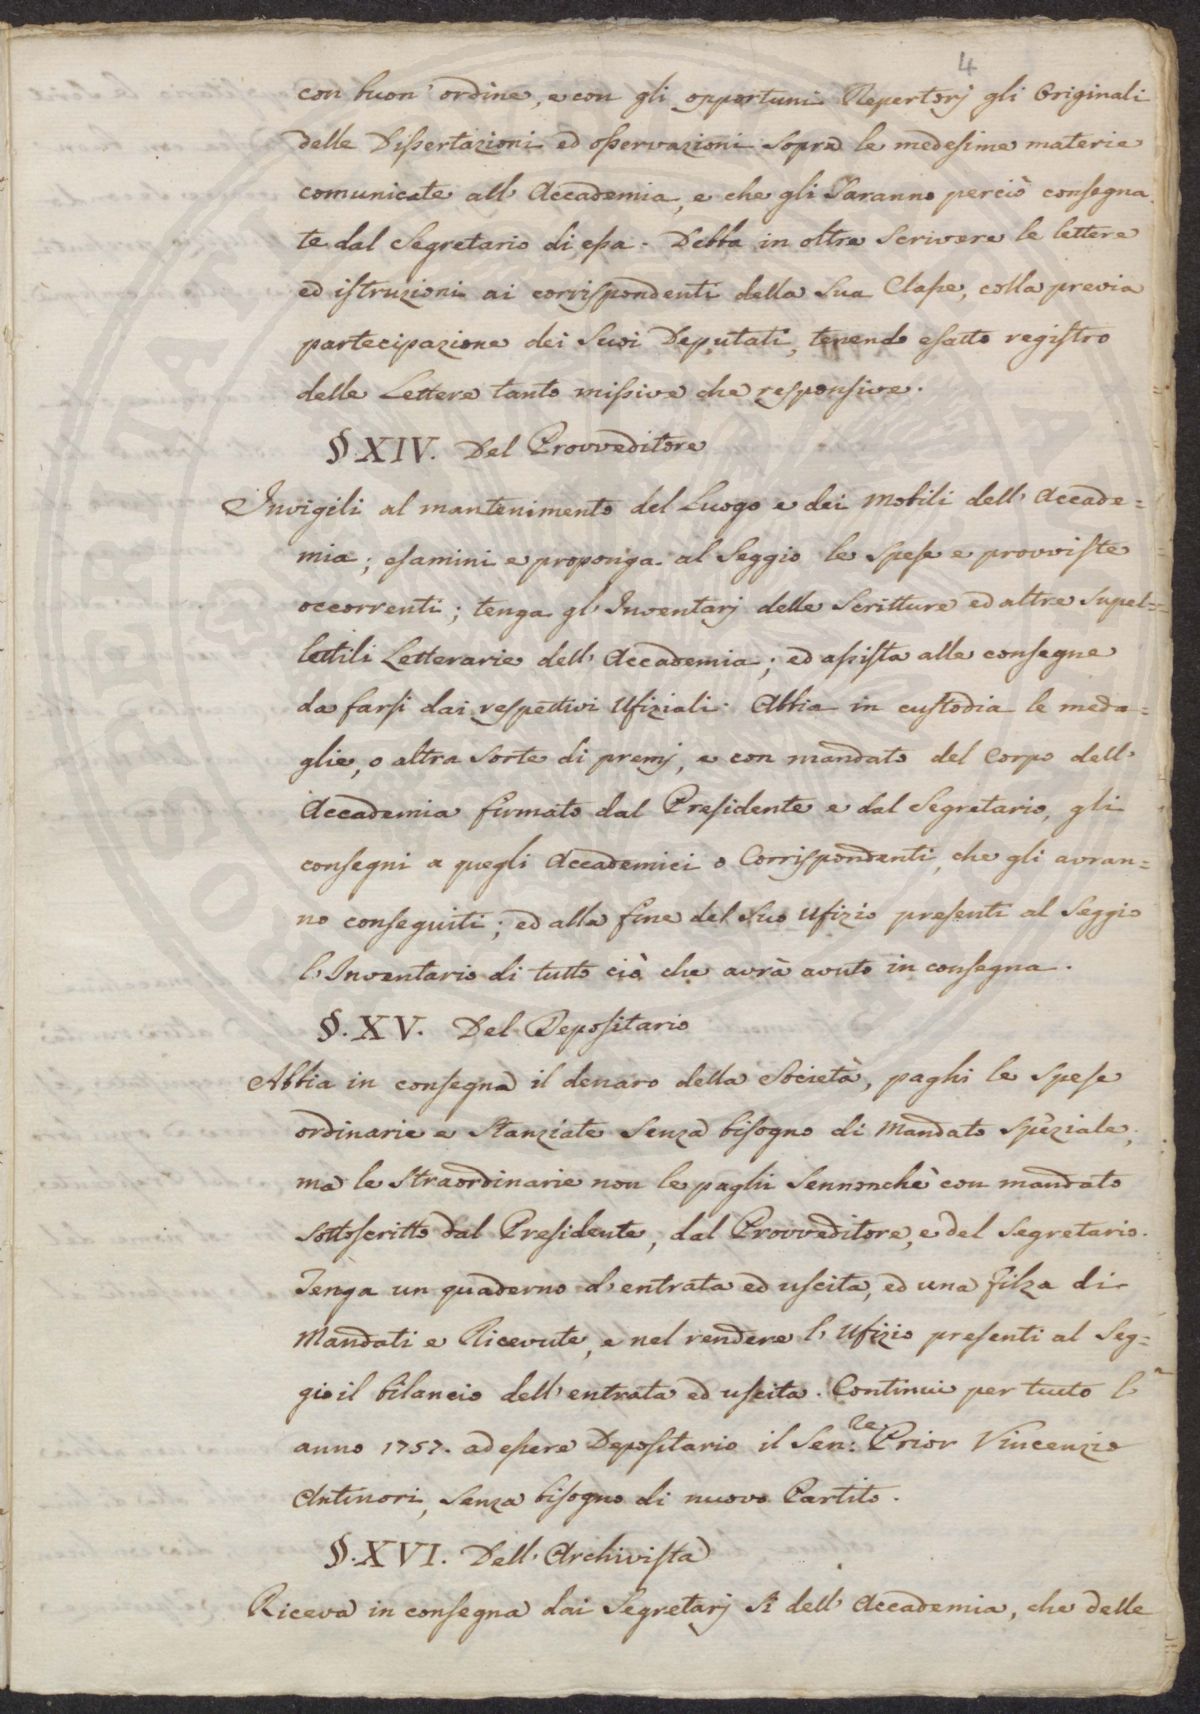 4
con buon' ordine, e con gli opportuni Repertorj gli Originali
delle Dissertazioni ed osservazioni sopra le medesime materie
comunicate all' Accademia, e che gli saranno perciò consegna
te dal Segretario di essa. Debba in oltre scrivere le lettere
ed istruzioni ai corrispondenti della sua Classe, colla previa
partecipazione dei suoi Deputati, tenendo esatto registro
delle Lettere tanto missive che responsive.
§. XIV. Del Provveditore
Invigili al mantenimento del Luogo e dei Mobili dell' Accade=
mia; esamini e proponga al Seggio le spese e provviste
occorrenti; tenga gl' Inventarj delle Scritture ed altre supel=
lettili Letterarie dell' Accademia; ed assista alle consegne
da farsi dai respettivi Ufiziali. Abbia in custodia le meda=
glie, o altra sorte di premj, e con mandato del Corpo dell'
Accademia firmato dal Presidente e dal Segretario, gli
consegni a quegli Accademici o Corrispondenti, che gli avran=
no conseguiti; ed alla fine del suo Ufizio presenti al Seggio
l' Inventario di tutto ciò che avrà avuto in consegna.
§. XV. Del Depositario
Abbia in consegna il denaro della Società, paghi le spese
ordinarie e stanziate senza bisogno di Mandato speziale,
ma le straordinarie non le paghi sennonchè con mandato
sottoscritto dal Presidente, dal Provveditore, e del Segretario.
Tenga un quaderno d' entrata ed uscita, ed una filza di
Mandati e Ricevute, e nel rendere l' Ufizio presenti al Seg=
gio il bilancio dell' entrata ed uscita. Continui per tutto l'
anno 1757. ad essere Depositario il Sen:re Prior Vincenzio
Antinori, senza bisogno di nuovo Partito.
§. XVI. Dell' Archivista
Riceva in consegna dai Segretarj sì dell' Accademia, che delle